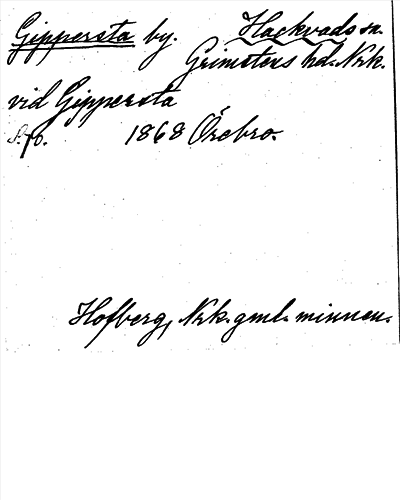 Gippersta by. Hackvads sn.
Grimstens hd. Nrk.
vid Gippersta
S. 70. 1868 Örebro.
Hofberg, Nrk. gml. minnen.